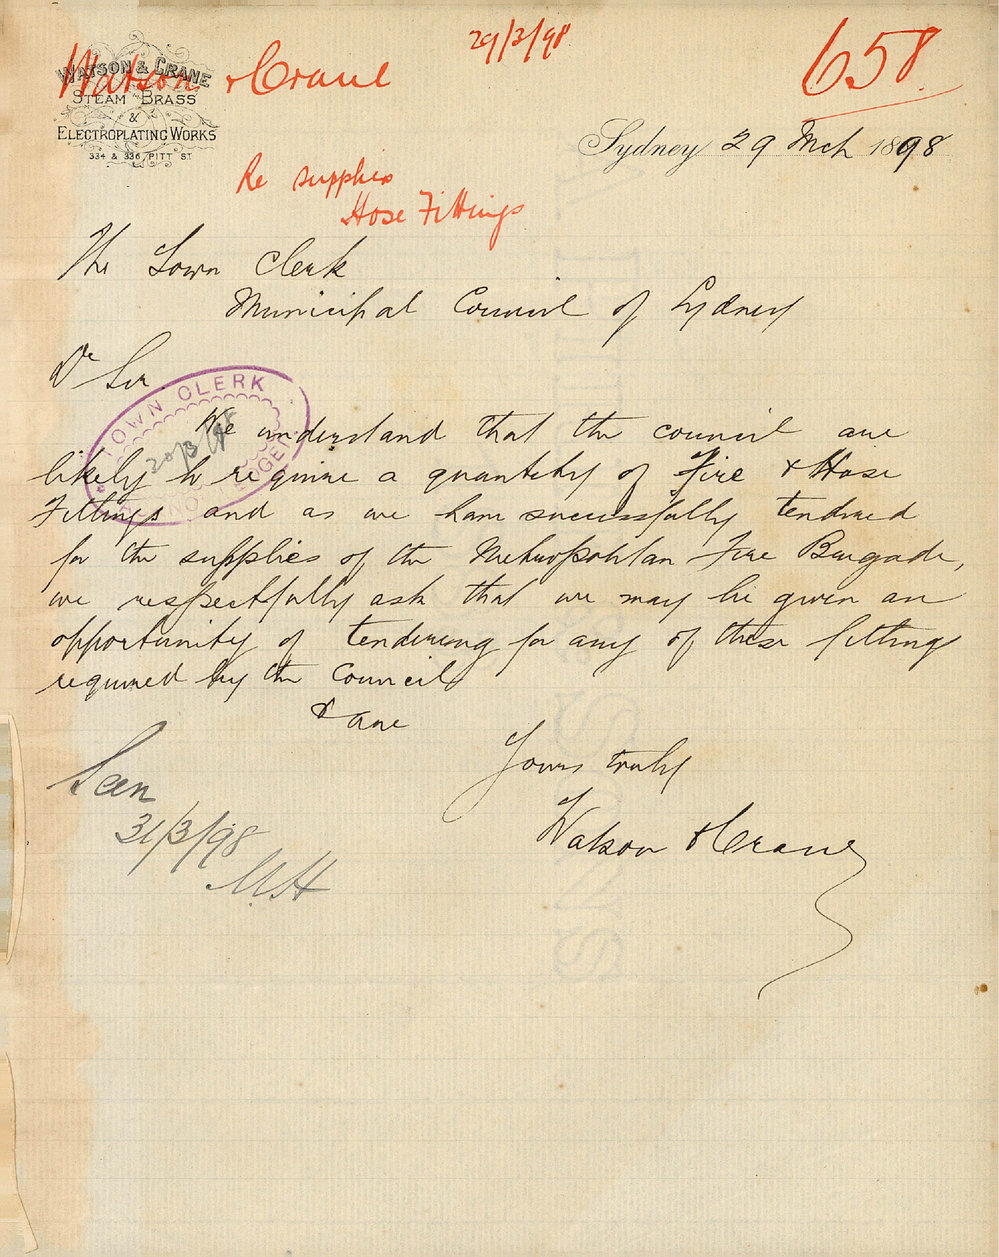 29/3/98
658
Watson & Crane
WATSON & CRANE
STEAM BRASS
&
ELECTROPLATING WORKS
334 & 336, PITT ST
Sydney 29 Mch 1898
Re supplies
Hose Fittings
The Town Clerk
Municipal Council of Sydney
Dr Sir
TOWN CLERK
We understand that the council are
likely to require a quantity of Fire & Hose
Fittings and as we have successfully tendered
for the supplies of the Metropolitan Fire Brigade,
we respectfully ask that we may be given an
opportunity of tendering for any of these fittings
required by the Council
& are
Yours truly
Watson & Crane
Seen
31/3/98